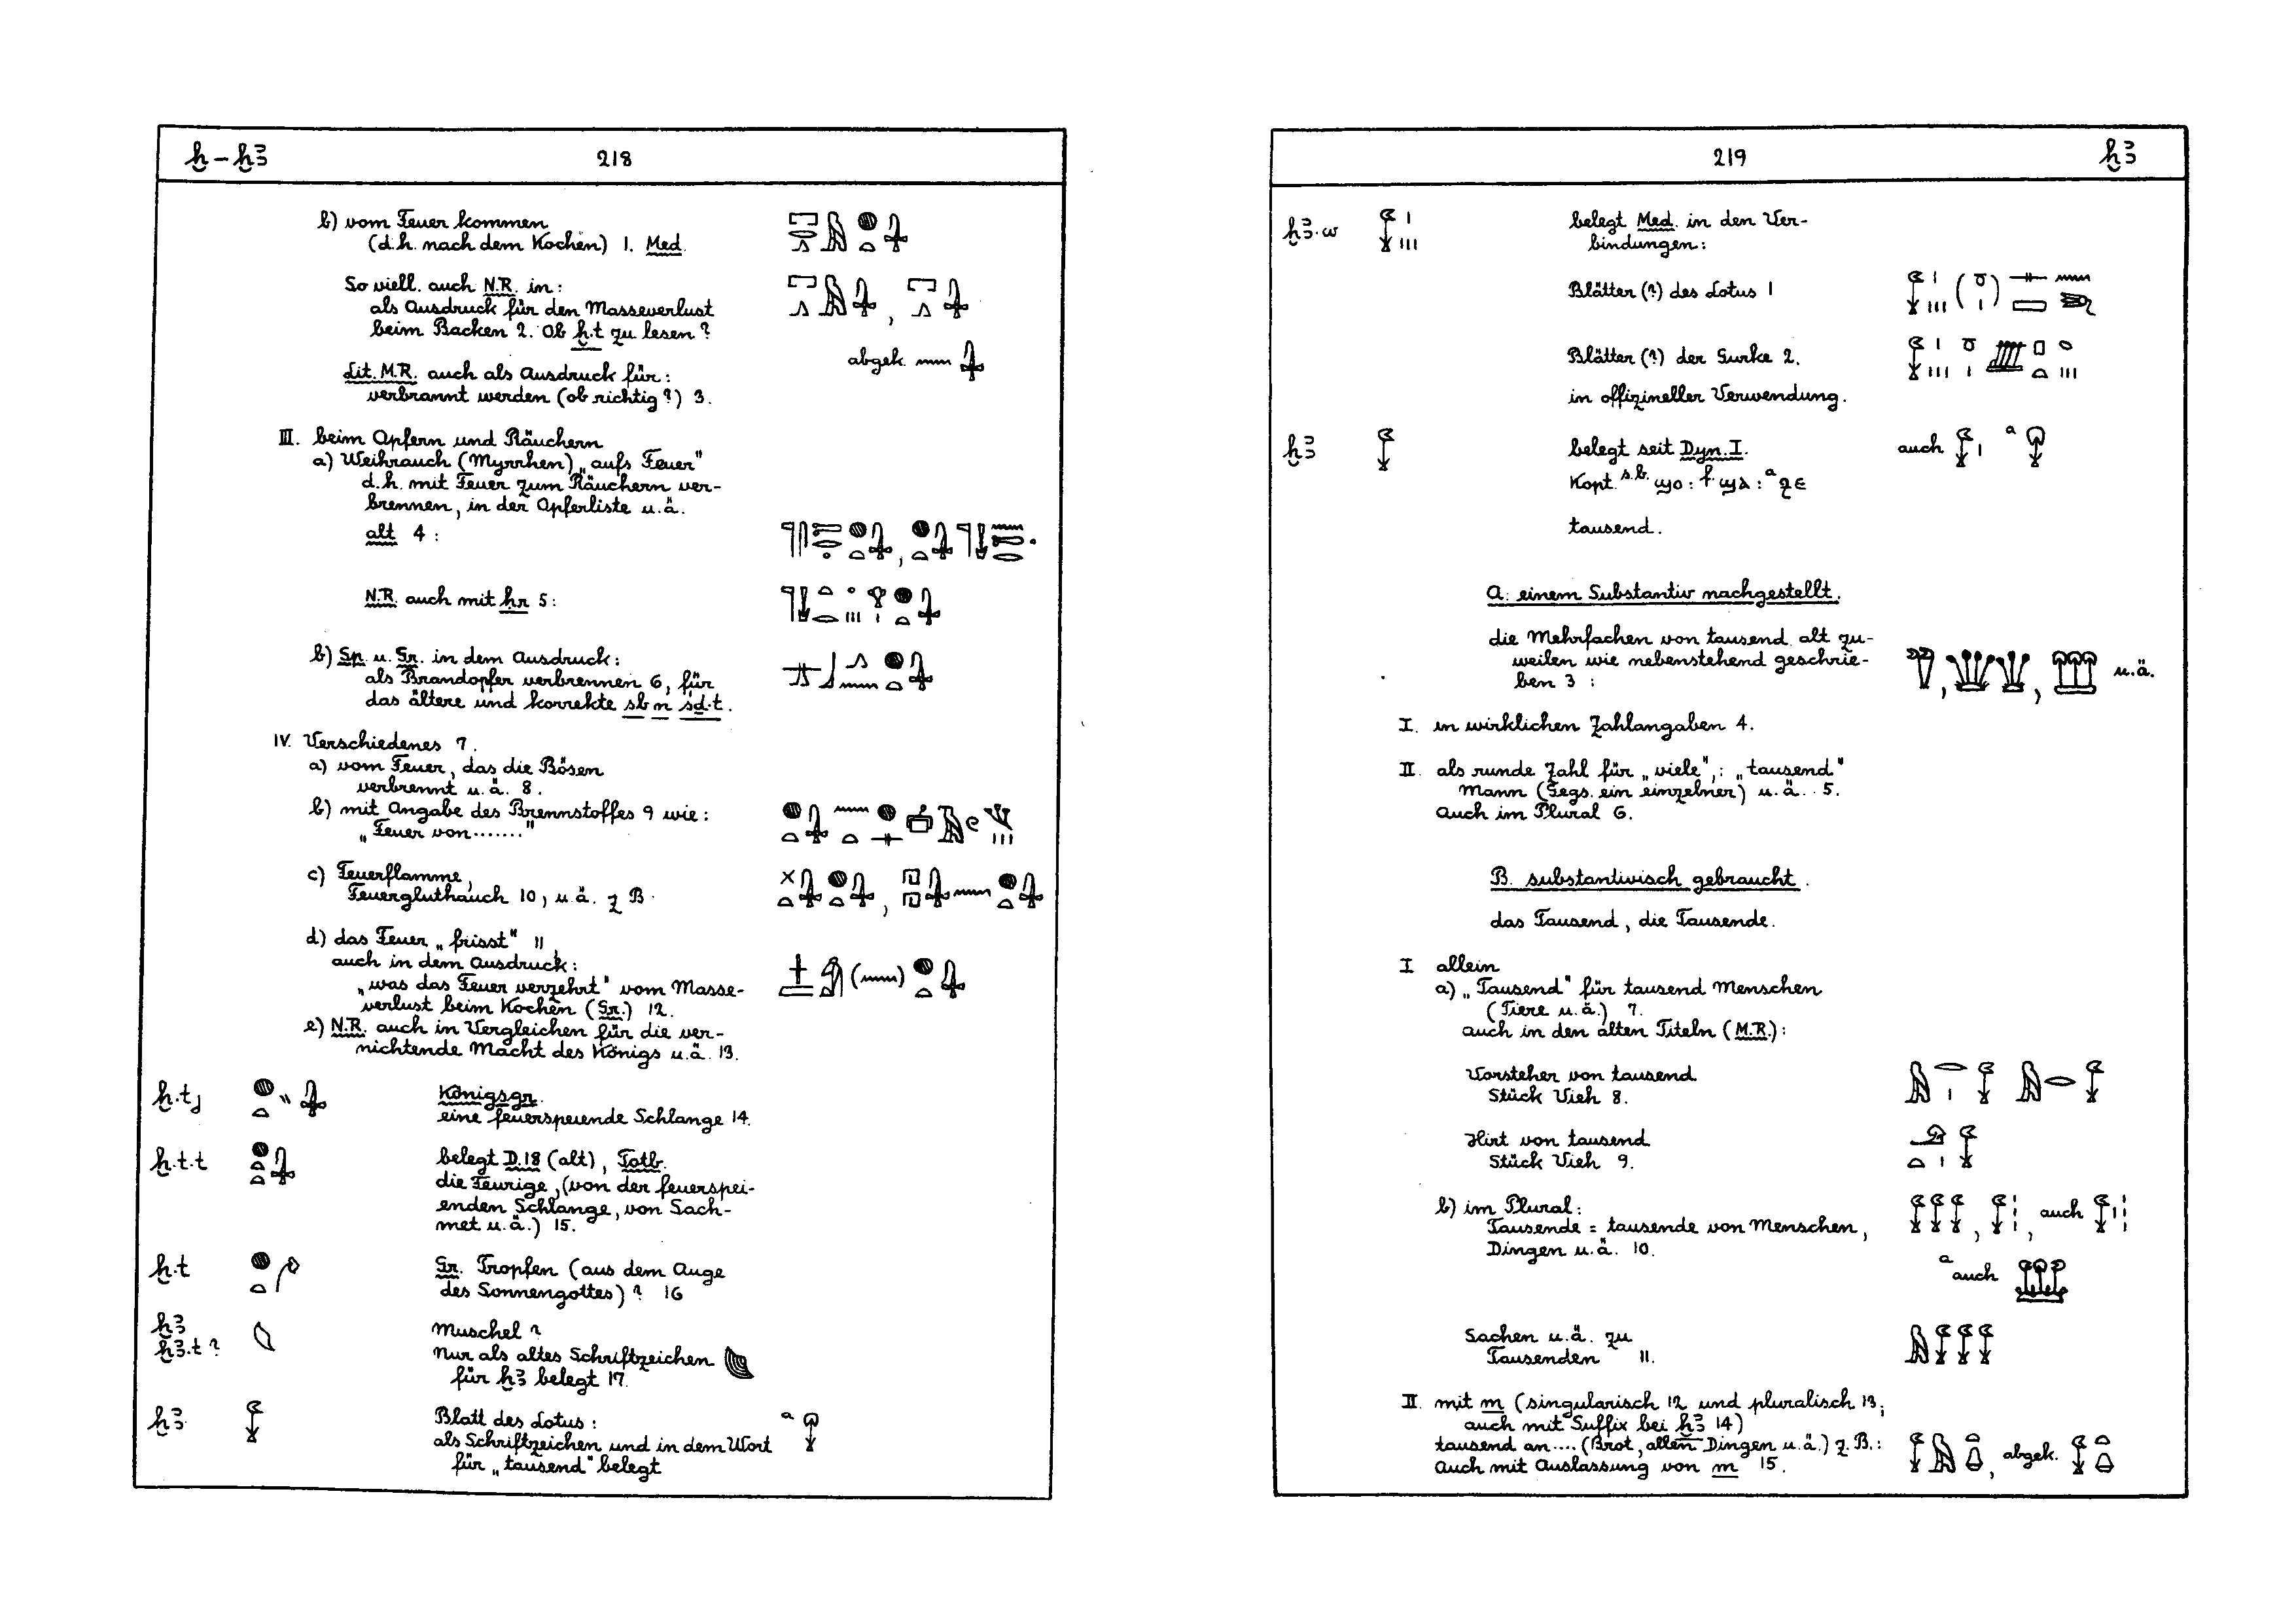 ḫ – ḫꜣ 218
b) vom Feuer kommen
(d.h. nach dem Kochen) 1. Med.
So viell. auch N.R. in:
als Ausdruck für den Masseverlust
beim Backen 2. Ob ḫ.t zu lesen?
abgek.
Lit. M.R. auch als Ausdruck für:
verbrannt werden (ob richtig?) 3.
III. beim Opfern und Räuchern
a) Weihrauch (Myrrhen) „aufs Feuer"
d.h. mit Feuer zum Räuchern ver-
brennen, in der Opferliste u.ä.
alt 4:
N.R. auch mit ḥr 5:
b) Sp. u. Gr. in dem Ausdruck:
als Brandopfer verbrennen 6, für
das ältere und korrekte sb n sḏ.t.
IV. Verschiedenes 7.
a) vom Feuer, das die Bösen
verbrennt u.ä. 8.
b) mit Angabe des Brennstoffes 9 wie:
„Feuer von ......."
c) Feuerflamme,
Feuergluthauch 10, u.ä. z B.
d) das Feuer „frisst" 11,
auch in dem Ausdruck:
„was das Feuer verzehrt" vom Masse-
verlust beim Kochen (Gr.) 12.
e) N.R. auch in Vergleichen für die ver-
nichtende Macht des Königs u.ä. 13.
ḫ.tj Königsgr.
eine feuerspeiende Schlange 14.
ḫ.t.t belegt D.18 (alt), Totb.
die Feurige, (von der feuerspei-
enden Schlange, von Sach-
met u.ä.) 15.
ḫ.t Gr. Tropfen (aus dem Auge
des Sonnengottes)? 16
ḫꜣ Muschel?
ḫꜣ.t? Nur als altes Schriftzeichen
für ḫꜣ belegt 17.
ḫꜣ Blatt des Lotus: a
als Schriftzeichen und in dem Wort
für „tausend" belegt
219 ḫꜣ
ḫꜣ.w belegt Med. in den Ver-
bindungen:
Blätter (?) des Lotus 1
Blätter (?) der Gurke 2.
in offizineller Verwendung.
ḫꜣ belegt seit Dyn. I. auch a
Kopt. s.b. ϣⲟ : f. ϣⲁ : a ϩⲉ
tausend.
A. einem Substantiv nachgestellt.
die Mehrfachen von tausend alt zu-
weilen wie nebenstehend geschrie- u.ä.
ben 3 :
I. in wirklichen Zahlangaben 4.
II. als runde Zahl für „viele",: „tausend"
Mann (Gegs. ein einzelner) u.ä. 5.
Auch im Plural 6.
B. substantivisch gebraucht.
das Tausend, die Tausende.
I allein
a) „Tausend" für tausend Menschen
(Tiere u.ä.) 7.
auch in den alten Titeln (M.R.):
Vorsteher von tausend
Stück Vieh 8.
Hirt von tausend
Stück Vieh 9.
b) im Plural:
Tausende = tausende von Menschen, auch
Dingen u.ä. 10.
a auch
Sachen u.ä. zu
Tausenden 11.
II. mit m (singularisch 12 und pluralisch 13;
auch mit Suffix bei ḫꜣ 14)
tausend an.... (Brot, allen Dingen u.ä.) z. B.: abgek.
Auch mit Auslassung von m 15.